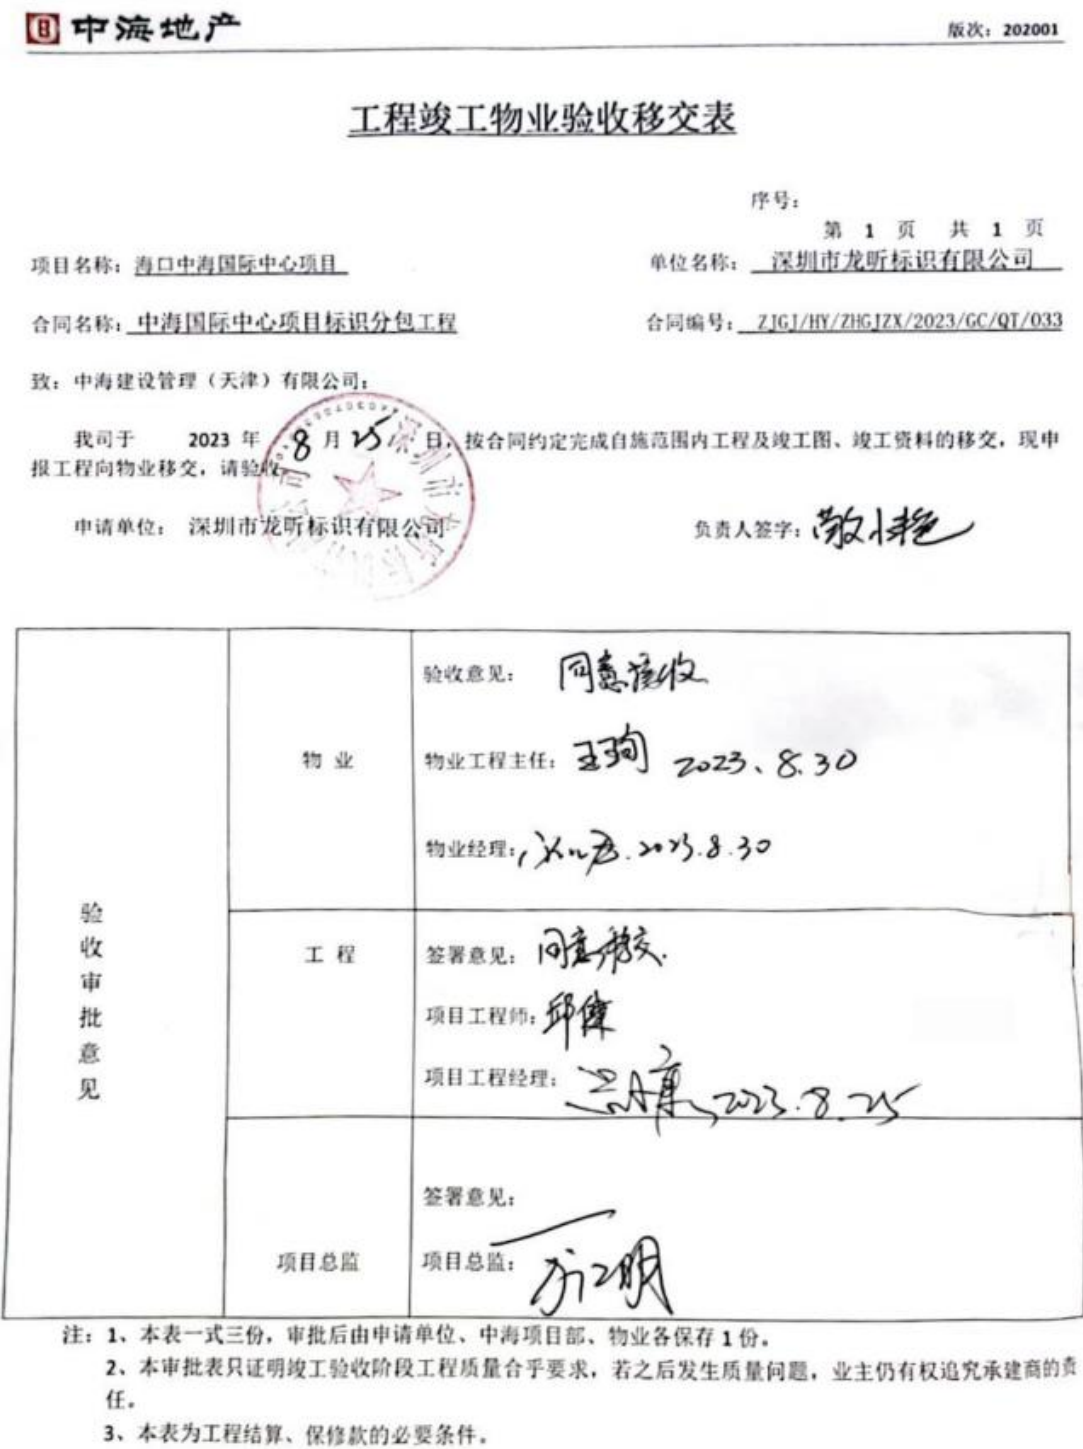 中海地产
版次：202001
工程竣工物业验收移交表
序号：
第 1 页 共 1 页
项目名称：海口中海国际中心项目
单位名称：深圳市龙昕标识有限公司
合同名称：中海国际中心项目标识分包工程
合同编号：ZJGJ/HY/ZHGJZX/2023/GC/QT/033
致：中海建设管理（天津）有限公司：
我司于 2023 年 8 月 25 日，按合同约定完成自施范围内工程及竣工图、竣工资料的移交，现申
报工程向物业移交，请验收
申请单位： 深圳市龙昕标识有限公司
负责人签字：
验收审批意见
物 业
验收意见： 同意接收
物业工程主任： 王珣 2023、8.30
物业经理： 2023.8.30
工 程
签署意见： 同意移交.
项目工程师： 邱健
项目工程经理： 2023.8.25
项目总监
签署意见：
项目总监：
注：1、本表一式三份，审批后由申请单位、中海项目部、物业各保存 1 份。
2、本审批表只证明竣工验收阶段工程质量合乎要求，若之后发生质量问题，业主仍有权追究承建商的责
任。
3、本表为工程结算、保修款的必要条件。